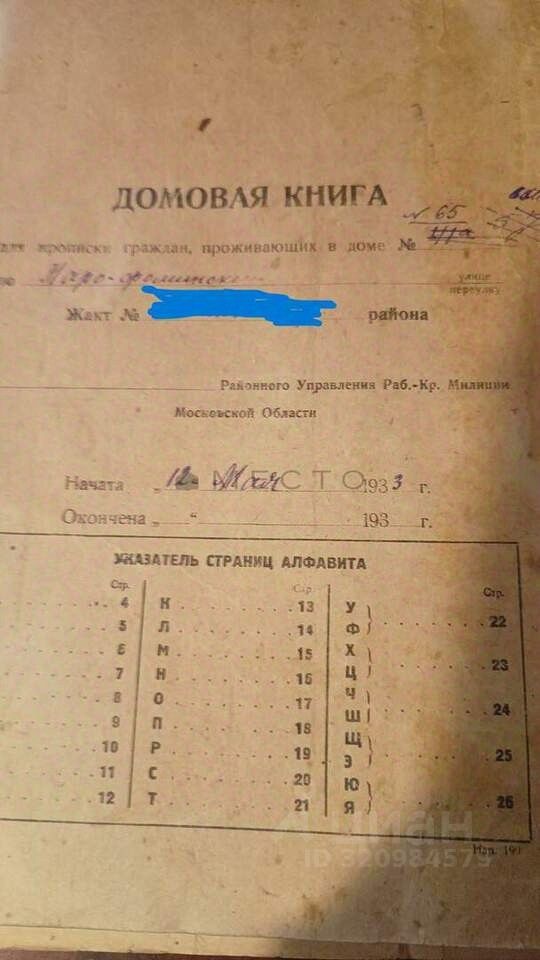 ДОМОВАЯ КНИГА
№ 65
для прописки граждан, проживающих в доме №
по Наро-Фоминск
улице
переулку
Жакт № района
Районного Управления Раб.-Кр. Милиции
Московской Области
Начата „ 12 " Мая 1933 г.
МЕСТО
Окончена „ " 193 г.
УКАЗАТЕЛЬ СТРАНИЦ АЛФАВИТА
Стр. Стр. Стр.
4 К 13 У
5 Л 14 Ф 22
6 М 15 Х
7 Н 16 Ц 23
8 О 17 Ч
9 П 18 Ш 24
10 Р 19 Щ
11 С 20 Э 25
12 Т 21 Ю
Я 26
циан
ID 320984579